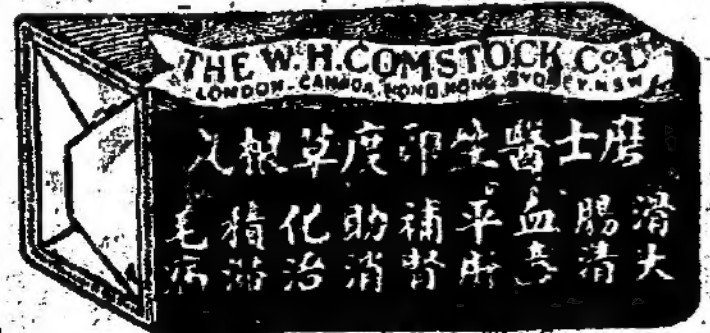 THE W.H. COMSTOCK Co Ld
LONDON-CANADA, HONG KONG, SYDNEY. N.S.W
磨士醫生印度草根丸
滑大
腸清
血毒
平肝
補腎
助消
化治
積滯
毛病